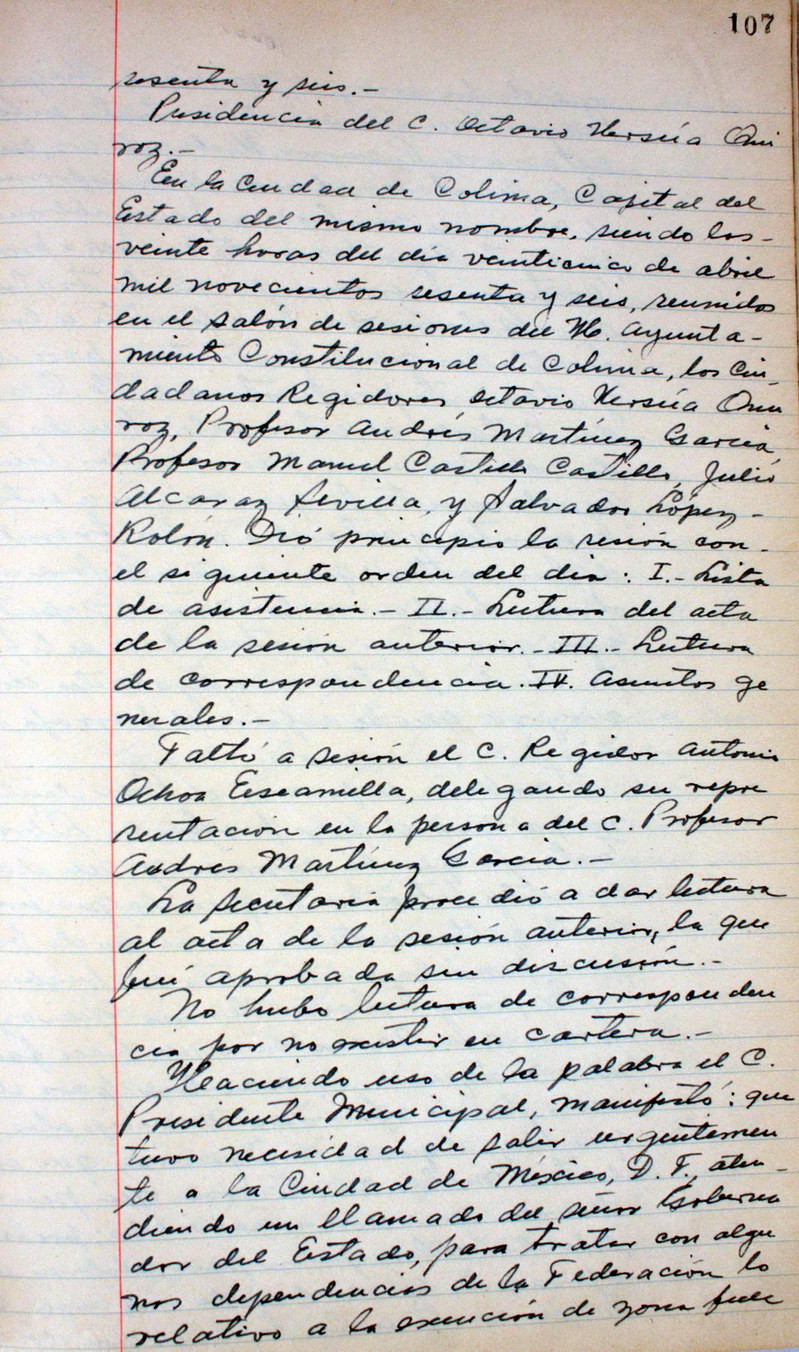 107
sesenta y seis.-
Presidencia del C. Octavio Ursúa Qui
roz.-
En la Ciudad de Colima, Capital del
Estado del mismo nombre, siendo las-
veinte horas del día veinticinco de abril
mil novecientos sesenta y seis, reunidos
en el salón de sesiones del H. Ayunta-
miento Constitucional de Colima, los Ciu-
dadanos Regidores Octavio Ursúa Qui
roz, Profesor Andrés Martínez García,
Profesor Manuel Castillo Castillo, Julio
Alcaraz Sevilla, y Salvador López-
Rolón. Dió principio la sesión con-
el siguiente orden del día: I.- Lista
de asistencia.- II.- Lectura del acta
de la sesión anterior.- III.- Lectura
de correspondencia. IV. Asuntos ge
nerales.-
Faltó a sesión el C. Regidor Antonio
Ochoa Escamilla, delegando su repre
sentación en la persona del C. Profesor
Andrés Martínez García.-
La secretaria procedió a dar lectura
al acta de la sesión anterior, la que
fué aprobada sin discusión.-
No hubo lectura de corresponden
cia por no existir en cartera.-
Haciendo uso de la palabra el C.
Presidente Municipal, manifestó: que
tuvo necesidad de salir urgentemen
te a la Ciudad de México, D. F. aten-
diendo un llamado del señor Goberna
dor del Estado, para tratar con algu
nas dependencias de la Federación lo
relativo a la exención de zona fede